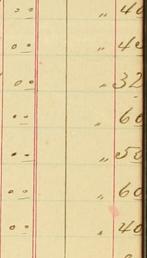 " 40
" 40
" 32
" 60
" 50
" 60
" 40